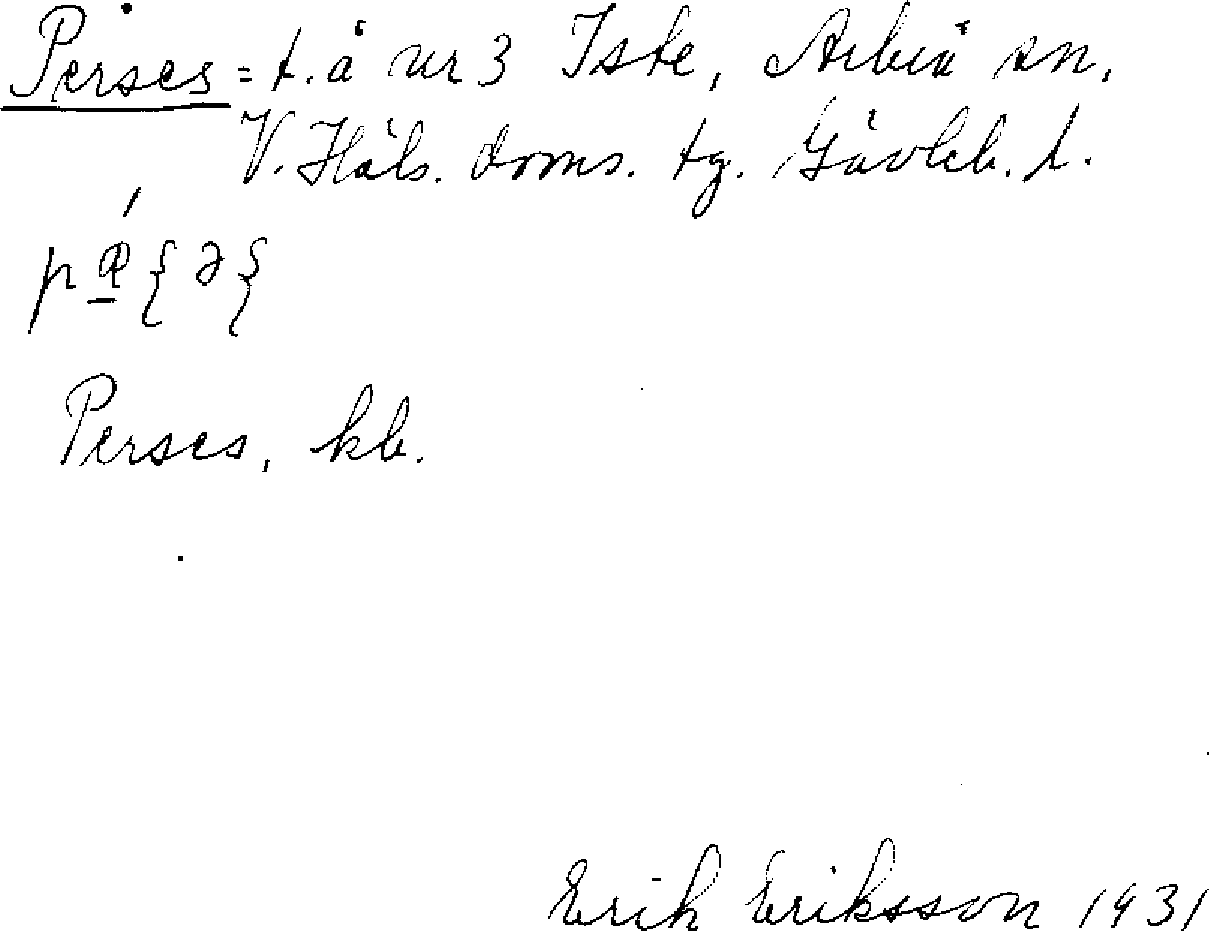 Perses = t. å nr 3 Iste, Arbrå sn.
V. Häls. doms. tg. Gävleb. l.
pǽ̲ʃəʃ
Perses, kb.
Erik Eriksson 1931